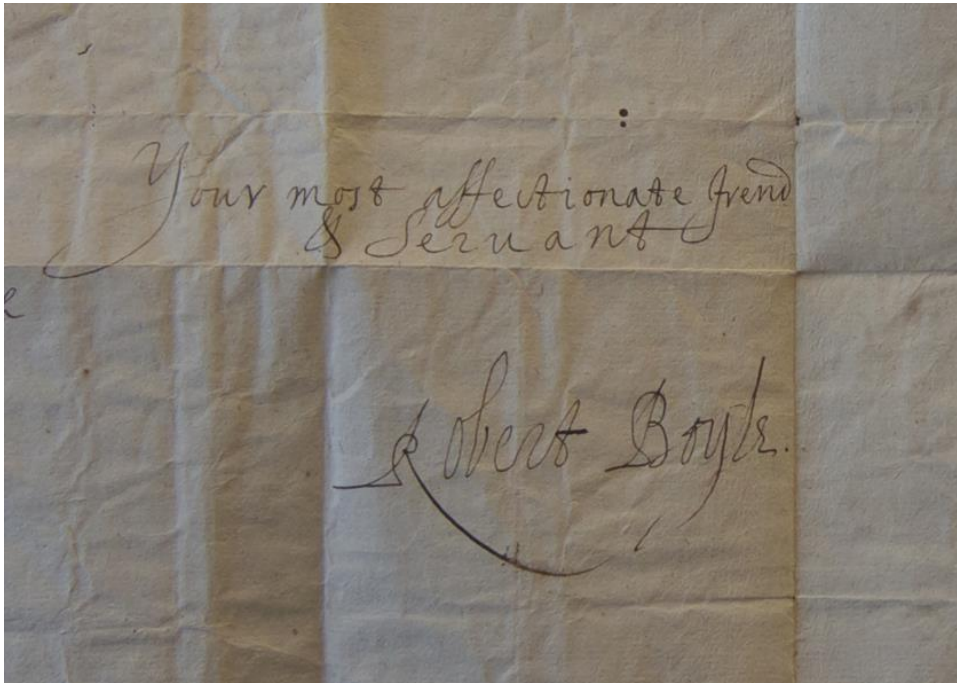 Your most affectionate frend
& Servant
Robert Boyle.